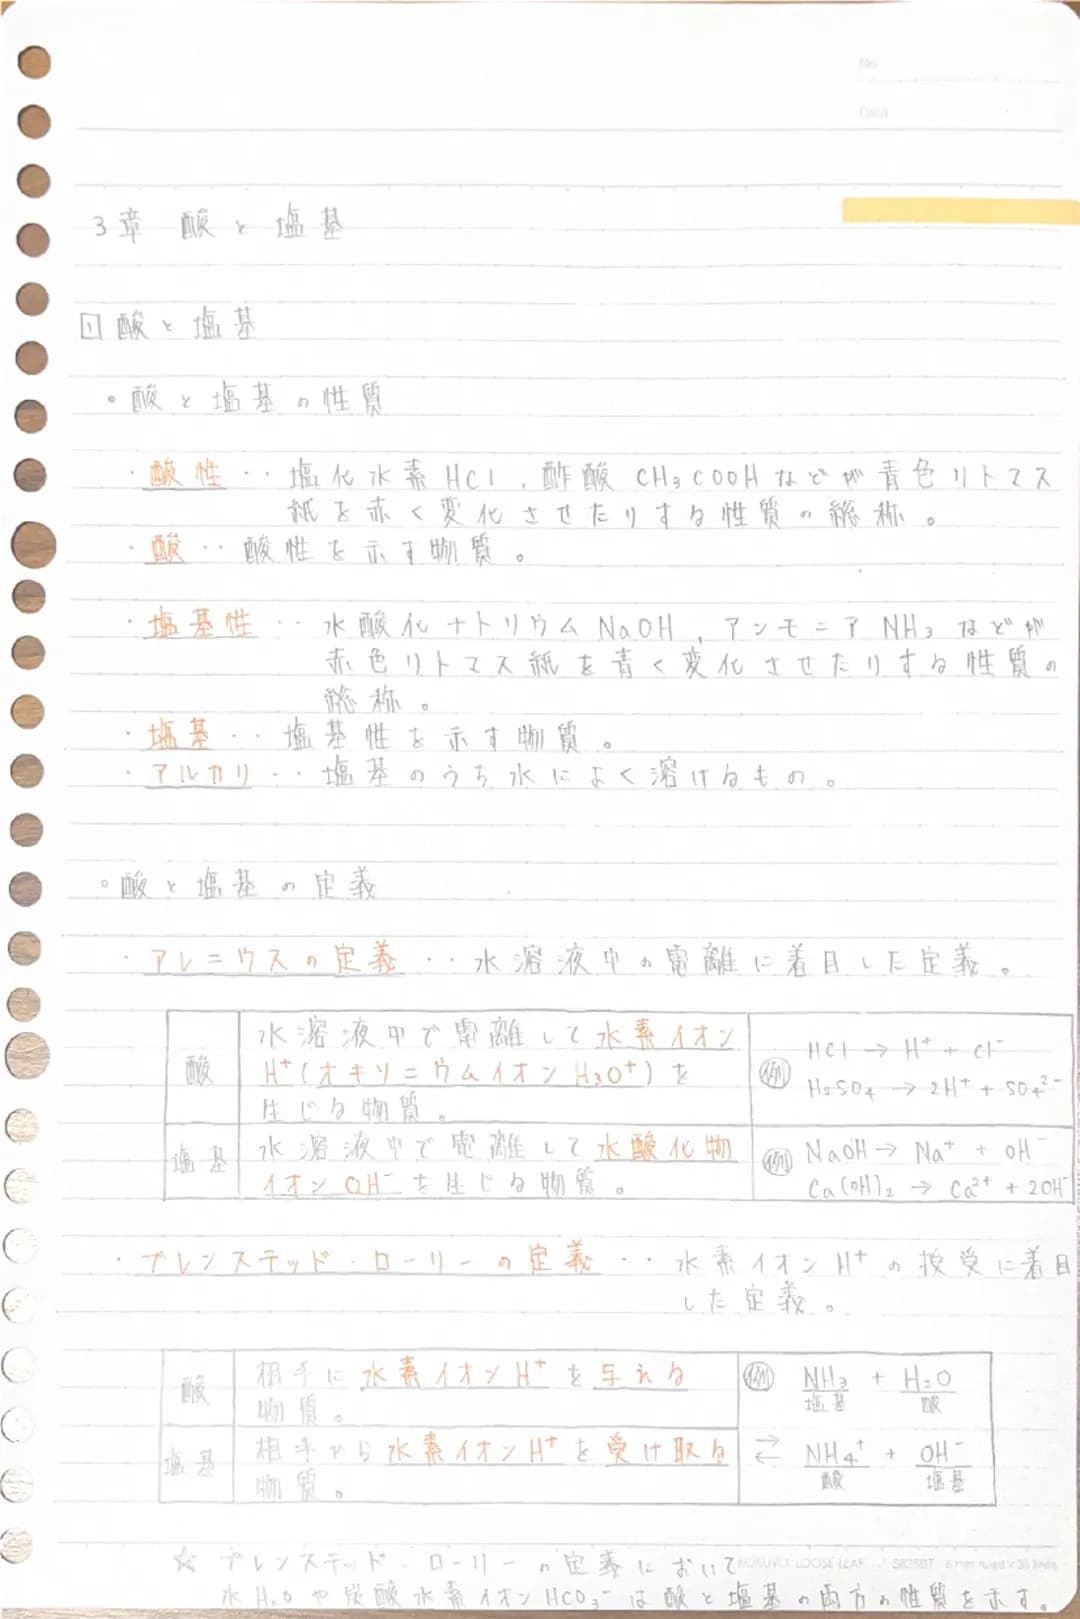 No.
Date
3章 酸と塩基
1 酸と塩基
○酸と塩基の性質
・酸性‥塩化水素HCl，酢酸CH₃COOHなどが青色リトマス
紙を赤く変化させたりする性質の総称。
・酸‥酸性を示す物質。
・塩基性‥水酸化ナトリウムNaOH，アンモニアNH₃などが
赤色リトマス紙を青く変化させたりする性質の
総称。
・塩基‥塩基性を示す物質。
・アルカリ‥塩基のうち水によく溶けるもの。
○酸と塩基の定義
・アレニウスの定義‥水溶液中の電離に着目した定義。
酸
水溶液中で電離して水素イオン
H⁺(オキソニウムイオンH₃O⁺)を
生じる物質。
例 HCl → H⁺ + Cl⁻
H₂SO₄ → 2H⁺ + SO₄²⁻
塩基
水溶液中で電離して水酸化物
イオンOH⁻を生じる物質。
例 NaOH → Na⁺ + OH⁻
Ca(OH)₂ → Ca²⁺ + 2OH⁻
・ブレンステッド・ローリーの定義‥水素イオンH⁺の授受に着目
した定義。
酸
相手に水素イオンH⁺を与える
物質。
塩基
相手から水素イオンH⁺を受け取る
物質。
例 NH₃ + H₂O
塩基 酸
⇄ NH₄⁺ + OH⁻
酸 塩基
☆ ブレンステッド・ローリーの定義において
KOKUYO LOOSE-LEAF
水H₂Oや炭酸水素イオンHCO₃⁻は酸と塩基の両方の性質を示す。